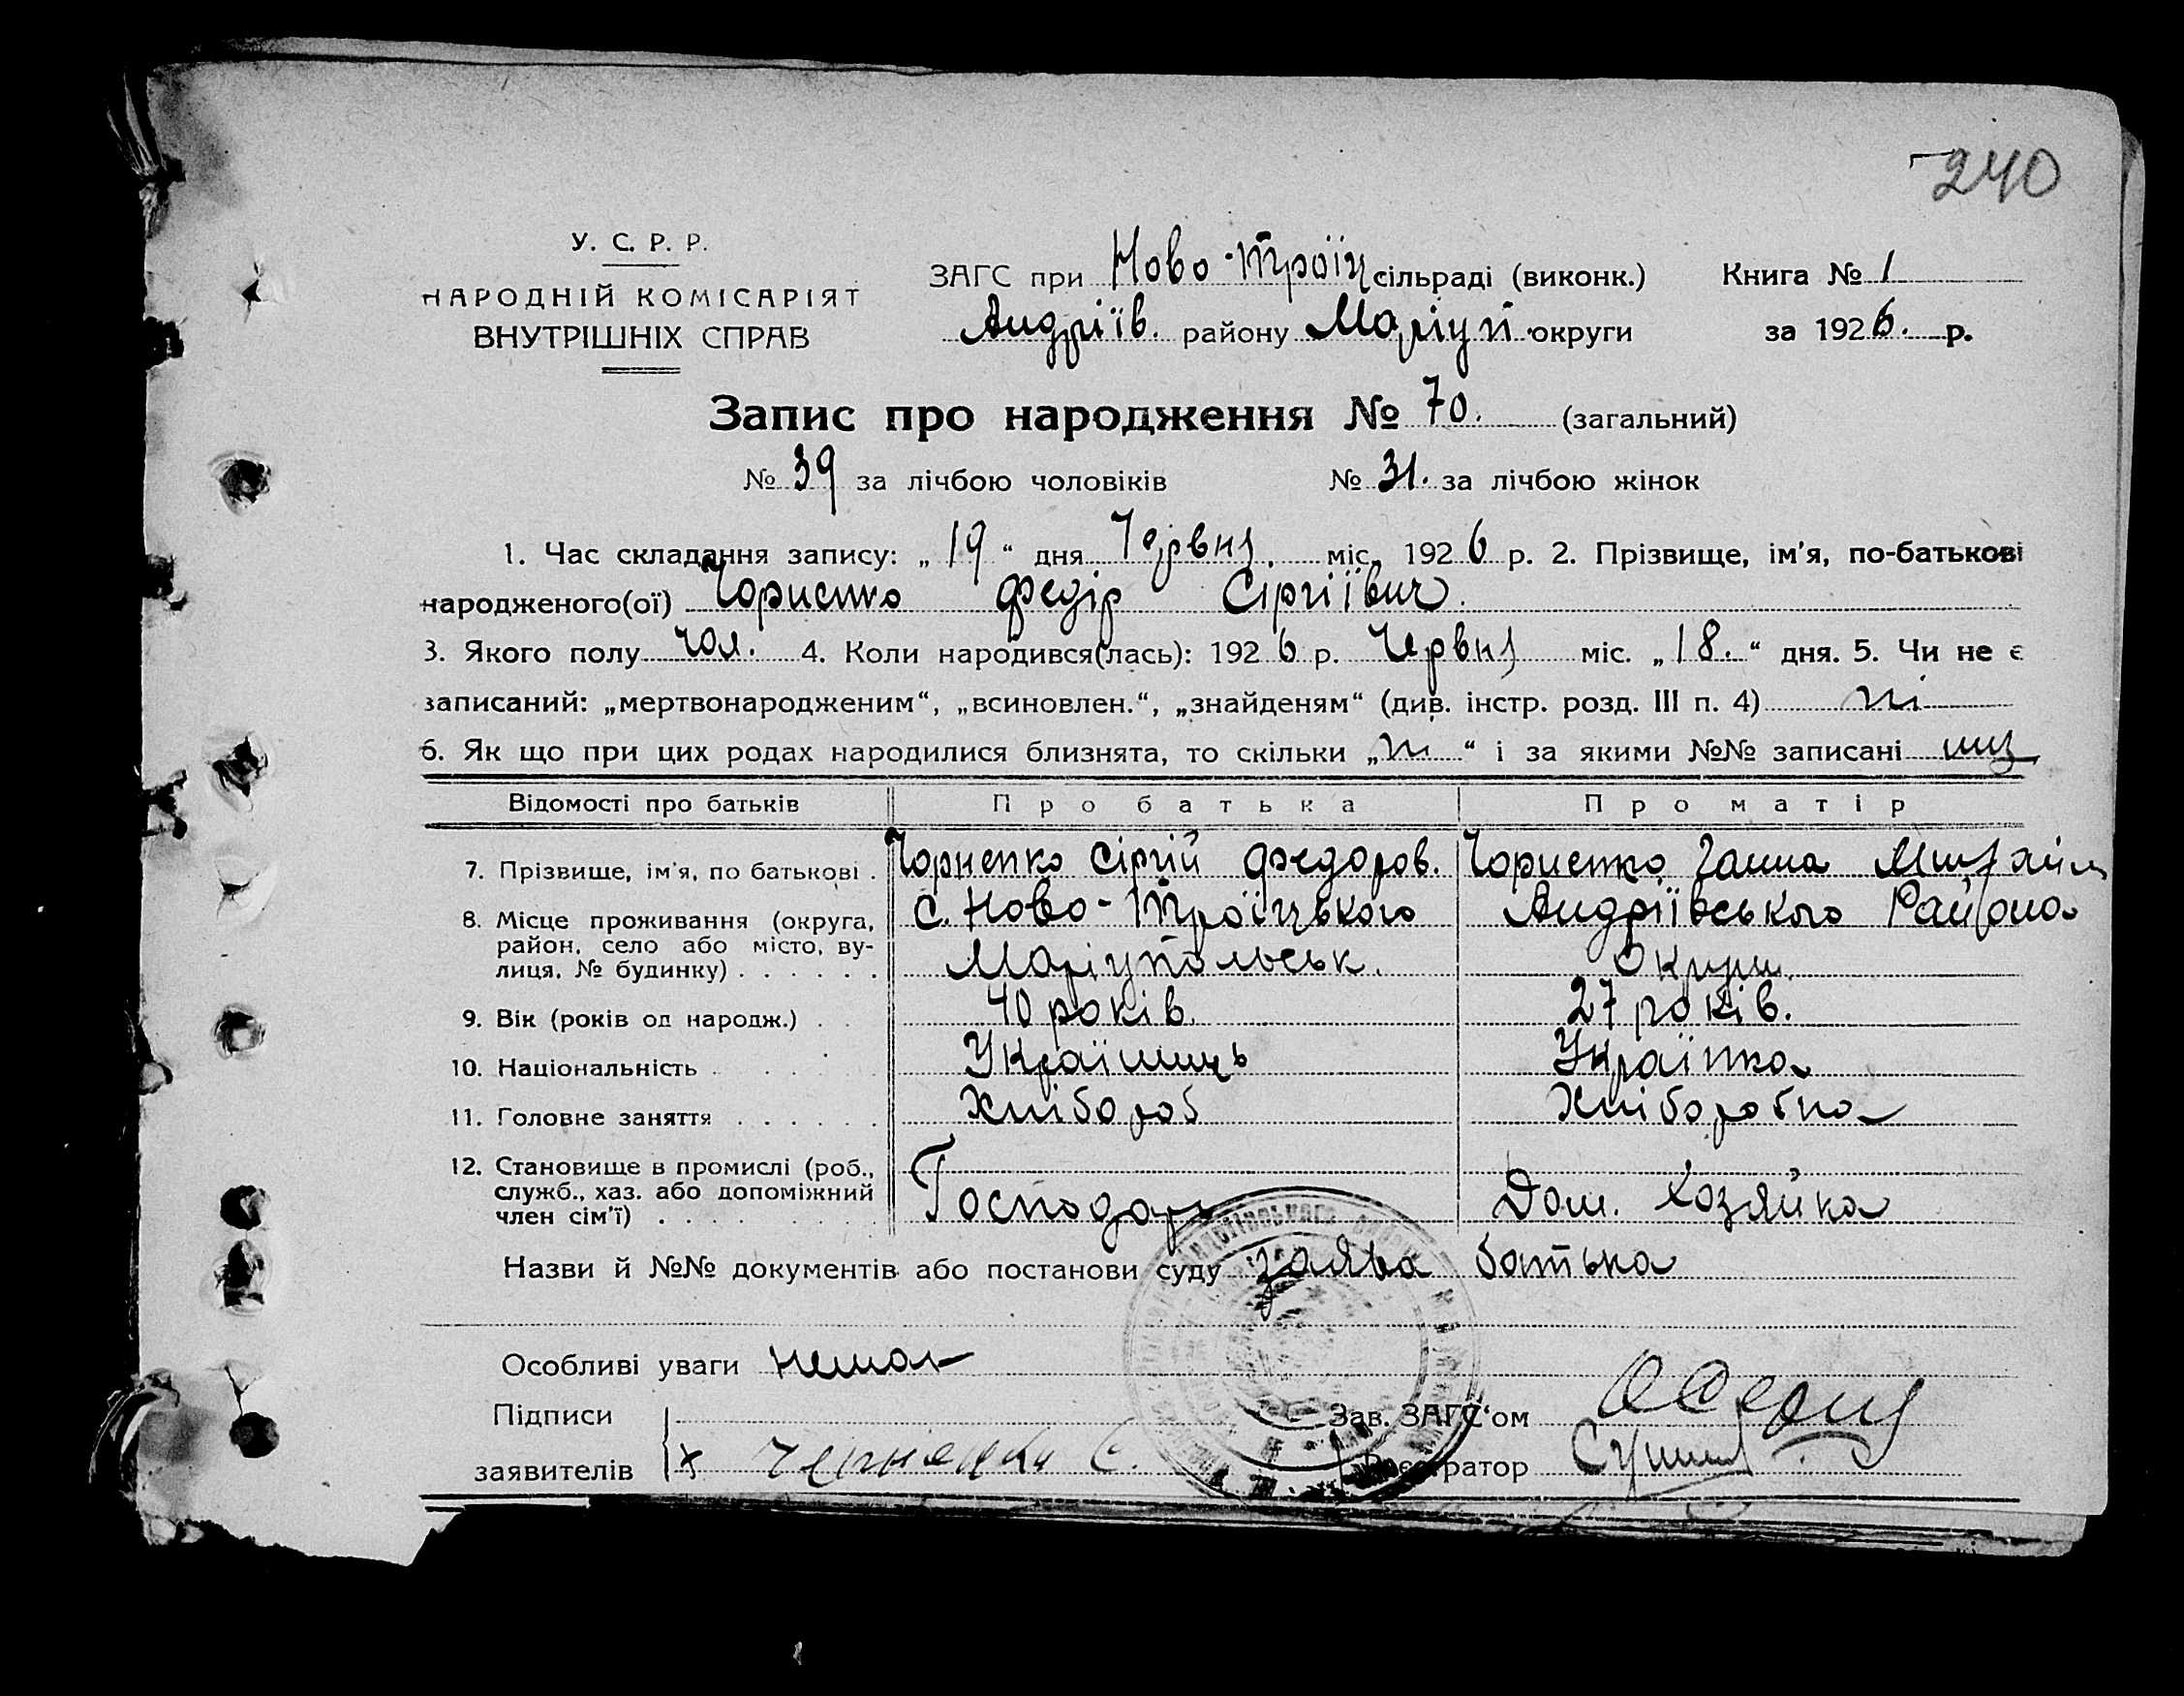 240
У. С. Р. Р.
НАРОДНІЙ КОМІСАРІЯТ
ВНУТРІШНІХ СПРАВ
ЗАГС при Ново-Троїц сільраді (виконк.) Книга № 1
Андріїв. району Маріуп. округи за 1926. р.
Запис про народження № 70. (загальний)
№ 39 за лічбою чоловіків № 31. за лічбою жінок
1. Час складання запису: „19“ дня Червня. міс. 1926 р. 2. Прізвище, ім'я, по-батькові
народженого(ої) Чорненко Федір Сіргіївич.
3. Якого полу чол. 4. Коли народився(лась): 1926 р. Червня міс. „18.“ дня. 5. Чи не є
записаний: „мертвонародженим“, „всиновлен.“, „знайденям“ (див. інстр. розд. III п. 4) ні
6. Як що при цих родах народилися близнята, то скільки „ні“ і за якими №№ записані
Відомості про батьків Про батька Про матір
7. Прізвище, ім'я, по батькові . Чорненко Сіргій Федоров. Чорненко Ганна Михайл
8. Місце проживання (округа, район, село або місто, вулиця, № будинку) . . . . . . с. Ново-Троїцького Андріївського Района
Маріупольськ. Округи
9. Вік (років од народж.) . . 40 років. 27 років.
10. Національність . . . . . Українець Українка
11. Головне заняття . . . . . . Хлібороб Хліборобка
12. Становище в промислі (роб., служб., хаз. або допоміжний член сім'ї) . . . . . . Господарь Дом. хозяйка
Назви й №№ документів або постанови суду заява батька
Особливі уваги нема
Підписи Зав. ЗАГС'ом
заявителів х С. Реєстратор